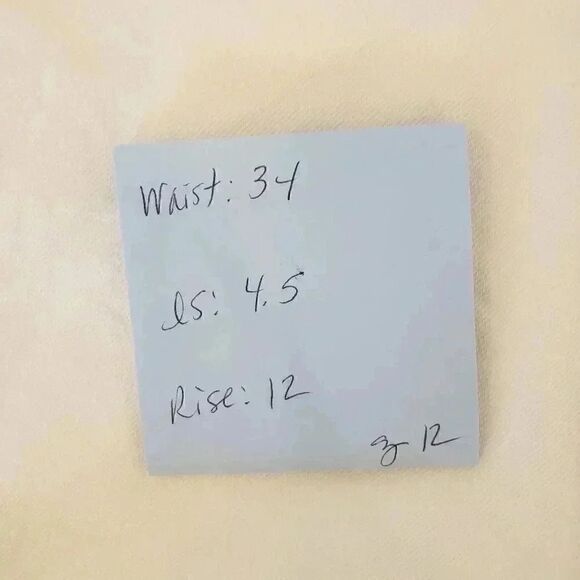 Waist: 34
IS: 4.5
Rise: 12
12